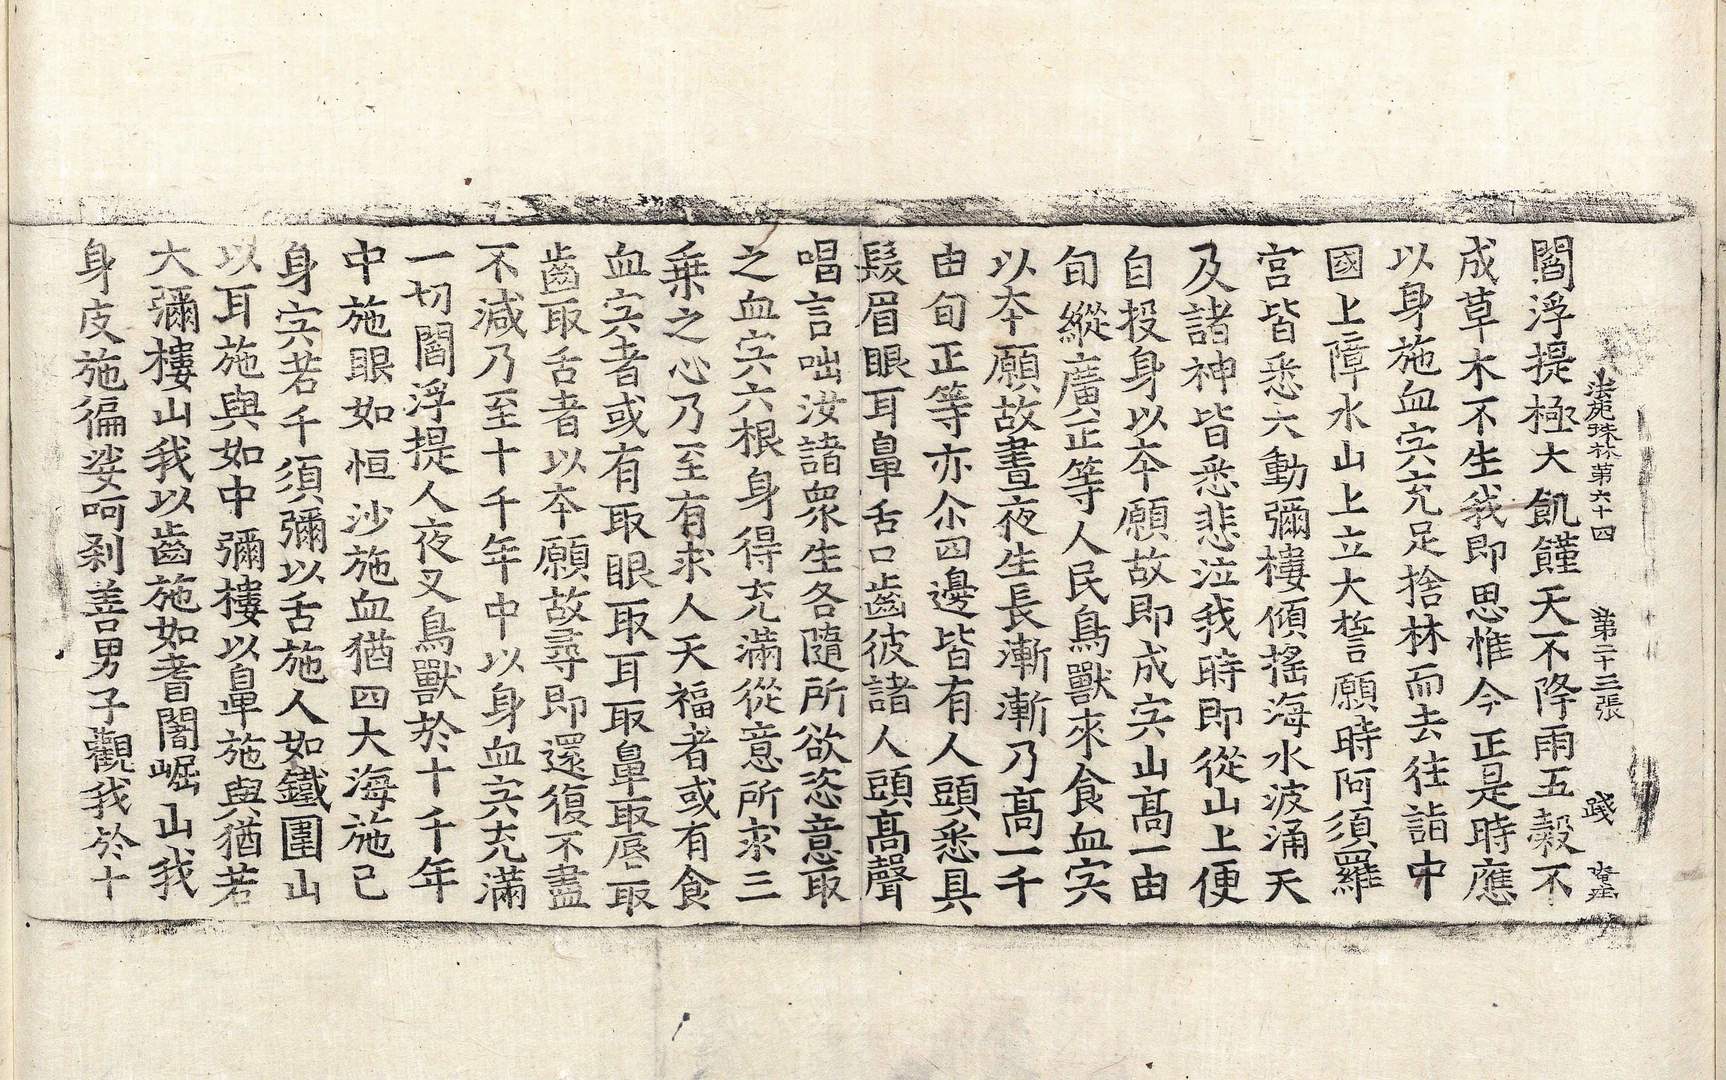 法苑珠林第六十四 第二十三張 踐
閻浮提極大飢饉天不降雨五穀不
成草木不生我即思惟今正是時應
以身施血宍充足捨林而去往詣中
國上障水山上立大誓願時阿須羅
宮皆悉六動彌樓傾搖海水波涌天
及諸神皆悉悲泣我時即從山上便
自投身以夲願故即成宍山高一由
旬縱廣正等人民鳥獸來食血宍
以夲願故晝夜生長漸漸乃高一千
由旬正等亦尒四邊皆有人頭悉具
髮眉眼耳鼻舌口齒彼諸人頭高聲
唱言咄汝諸衆生各隨所欲恣意取
之血宍六根身得充滿從意所求三
乗之心乃至有求人天福者或有食
血宍者或有取眼取耳取鼻取脣取
齒取舌者以夲願故尋即還復不盡
不減乃至十千年中以身血宍充滿
一切閻浮提人夜叉鳥獸於十千年
中施眼如恒沙施血猶四大海施己
身宍若千須彌以舌施人如鐵圍山
以耳施與如中彌樓以鼻施與猶若
大彌樓山我以齒施如耆闍崛山我
身皮施徧娑呵剎善男子觀我於十